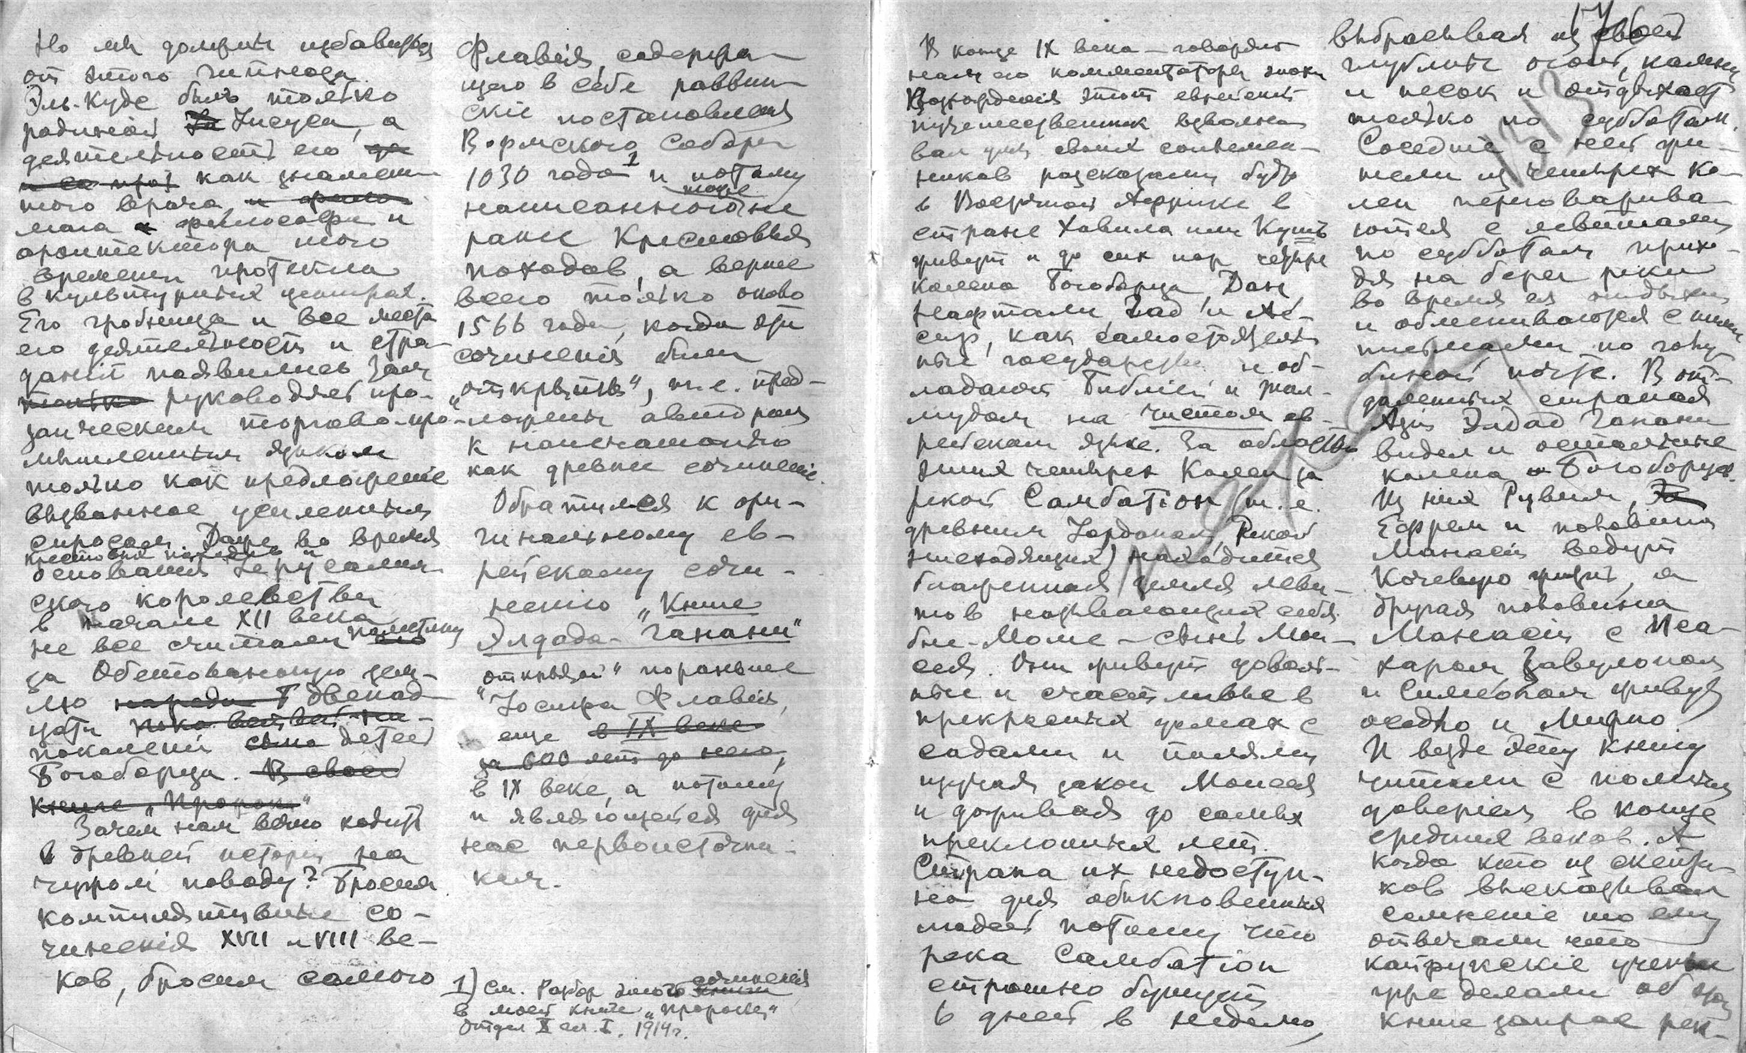 Но мы должны избавиться
от этого гипноза.
Эль-Кудс был только
родиной Иисуса, а
деятельность его
как знамени-
того врача
мага и философа и
архитектора того
времени протекла
в культурных центрах.
Его гробница и все места
его деятельности и стра-
даний появились там
руководясь про-
заическим торгово-про-
мышленным языком
только как предложение
вызванное усиленным
спросом. Даже во время
крестовых походов и
основания Иерусалим-
ского королевства
в начале XII века
не все считали Палестину
за Обетованную зем-
лю двенад-
цати
поколений детей
Богоборца.
Зачем нам вечно ходить
в древней истории на
чужом поводу? Бросим
компилятивные со-
чинения XVII и VIII ве-
ков, бросим самого
Флавия, содержа-
щего в себе раввин-
скіе постановления
Вормского собора
1030 года 1 и потому
написанного тоже не
ранее Крестовых
походов, а вернее
всего только около
1566 года, когда эти
сочинения были
„открыты", т.е. пред-
ложены авторам
к напечатанию
как древние сочинения.
Обратимся к ори-
гинальному ев-
рейскому сочи-
нению „Книге
Элдада-Ганани"
открытой пораньше
"Иосифа Флавия,
еще в IX веке
за 600 лет до него,
в IX веке, а потому
и являющейся для
нас первоисточни-
ком.
1) См. Разбор этого сочинения
в моей книге „Пророки"
Отдел X гл. I. 1914 г.
176
В конце IX века – говорят
нам его комментаторы эпохи
Возрождения этот еврейский
путешественник взволно-
вал умы своих соплемен-
ников рассказами будто
в Восточной Африке в
стране Хавила или Куш
живут и до сих пор четыре
колена Богоборца Дан
Нафтали Гад и Ас-
сир, как самостоятель-
ные государства и об-
ладают Библией и Тал-
мудом на чистом ев-
рейском языке. За областью
этих четырех колен за
рекой Самбатіон (т.е.
древним Иорданом Рекой
нисходящих) находится
благенная земля леви-
тов называющих себя
бне-Моше – сыны Мои-
сея. Они живут доволь-
ные и счастливые в
прекрасных домах с
садами и полями
изучая закон Моисея
и доживая до самых
преклонных лет.
Страна их недоступ-
на для обыкновенных
людей потому что
река Самбатіон
страшно бушует
6 дней в неделю,
выбрасывая из своей
глубины огонь, камни
и песок и отдыхает
только по субботам.
Соседние с ней жи-
тели из четырех ко-
лен переговарива-
ются с левитами
по субботам прихо-
дя на берег реки
во время ея отдыха
и обмениваются с ними
письмами по голу-
биной почте. В от-
даленных странах
Азіи Элдад Ганани
видел и остальные
колена Богоборца.
Из них Рувим,
Ефрем и половина
Манасіи ведут
Кочевую жизнь, а
другая половина
Манасіи с Иса-
харом Завулоном
и Симеоном живут
оседло и мирно
И везде эту книгу
читали с полным
доверием в конце
средних веков. А
когда кто из скепти-
ков высказывал
сомнение то ему
отвечали что
каируксkіе ученые
уже делали об этой
книге запрос рек-